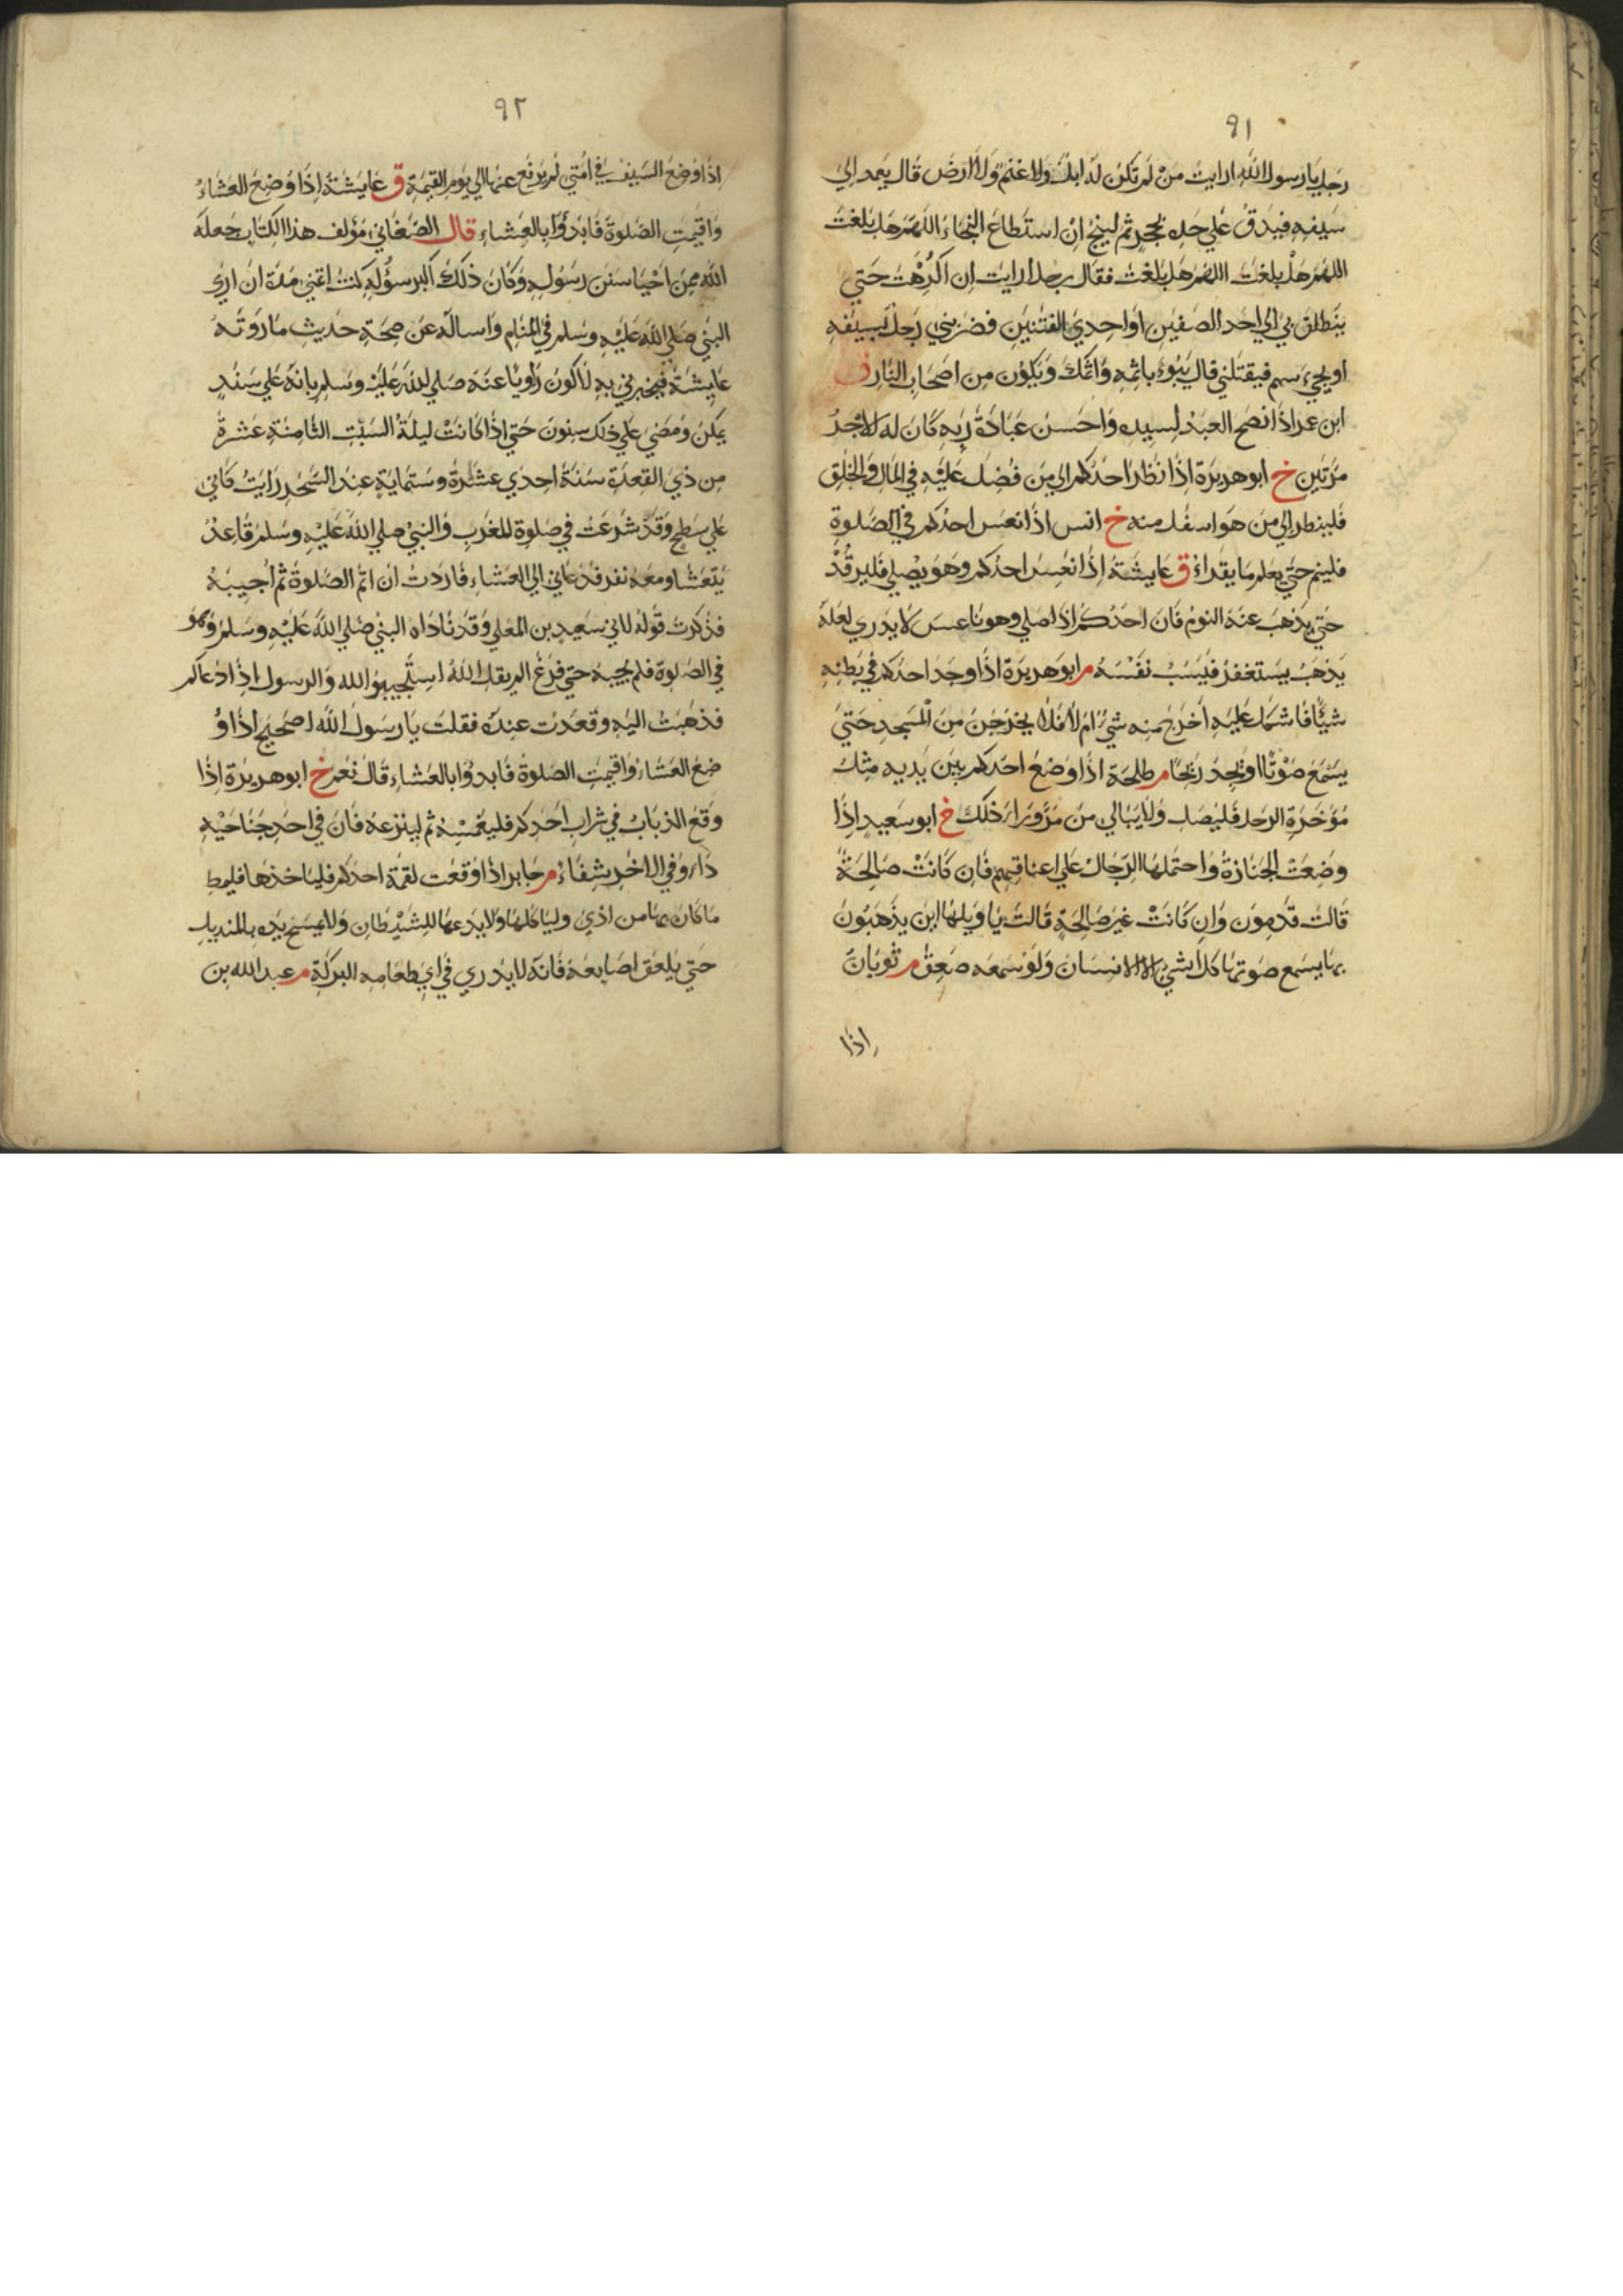 ٩١
رجل يا رسول الله ارايت من لم تكن له ابل ولا غنم ولا ارض قال يعمد الي
سيفه فيدق علي حده بحجر ثم لينج ان استطاع النجاء اللهم هل بلغت
اللهم هل بلغت اللهم هل بلغت فقال رجل ارايت ان اكرهت حتي
ينطلق بي الي احد الصفين او احدي الفئتين فضربني رجل بسيفه
او يجيء سهم فيقتلني قال يبوء باثمه واثمك ويكون من اصحاب النار ق
ابن عمر اذا نصح العبد لسيده واحسن عبادة ربه كان له الاجر
مرتين خ ابو هريرة اذا نظر احدكم الي من فضل عليه في المال والخلق
فلينظر الي من هو اسفل منه خ انس اذا نعس احدكم في الصلوة
فلينم حتي يعلم ما يقراء ق عايشة اذا نعس احدكم وهو يصلي فليرقد
حتي يذهب عنه النوم فان احدكم اذا صلي وهو ناعس لا يدري لعله
يذهب يستغفر فيسب نفسه م ابو هريرة اذا وجد احدكم في بطنه
شيئا فاشكل عليه اخرج منه شيء ام لا فلا يخرجن من المسجد حتي
يسمع صوتا او يجد ريحا م طلحة اذا وضع احدكم بين يديه مثل
مؤخرة الرحل فليصل ولا يبالي من مر وراء ذلك خ ابو سعيد اذا
وضعت الجنازة واحتملها الرجال علي اعناقهم فان كانت صالحة
قالت قدموني وان كانت غير صالحة قالت يا ويلها اين يذهبون
بها يسمع صوتها كل شيء الا الانسان ولو سمعه صعق م ثوبان
اذا
٩٢
اذا وضع السيف في امتي لم يرفع عنها الي يوم القيمة ق عايشة اذا وضع العشاء
واقيمت الصلوة فابدؤا بالعشاء قال الصغاني مؤلف هذا الكتاب جعله
الله ممن احيا سنن رسوله وكان ذلك اكبر سؤله كنت اتمني مدة ان اري
النبي صلي الله عليه وسلم في المنام واساله عن صحة حديث ما روته
عايشة فيخبرني به لاكون راويا عنه صلي الله عليه وسلم بانه علي سند
يمكن ومضي علي ذلك سنون حتي اذا كانت ليلة السبت الثامنة عشرة
من ذي القعدة سنة احدي عشرة وستماية عند السحر رايت كاني
علي سطح وقد شرعت في صلوة المغرب والنبي صلي الله عليه وسلم قاعد
يتعشا ومعه نفر فدعاني الي العشاء فاردت ان اتم الصلوة ثم اجيبه
فذكرت قوله لابي سعيد بن المعلي وقد ناداه النبي صلي الله عليه وسلم وهو
في الصلوة فلم يجبه حتي فرغ الم يقل الله استجيبوا لله والرسول اذا دعاكم
فذهبت اليه وقعدت عنده فقلت يا رسول الله اصحيح اذا و
ضع العشاء واقيمت الصلوة فابدؤا بالعشاء قال نعم خ ابو هريرة اذا
وقع الذباب في شراب احدكم فليغمسه ثم لينزعه فان في احد جناحيه
داء وفي الاخر شفاء م جابر اذا وقعت لقمة احدكم فلياخذها فليمط
ما كان بها من اذي ولياكلها ولا يدعها للشيطان ولا يمسح يده بالمنديل
حتي يلعق اصابعه فانه لا يدري في اي طعامه البركة م عبد الله بن